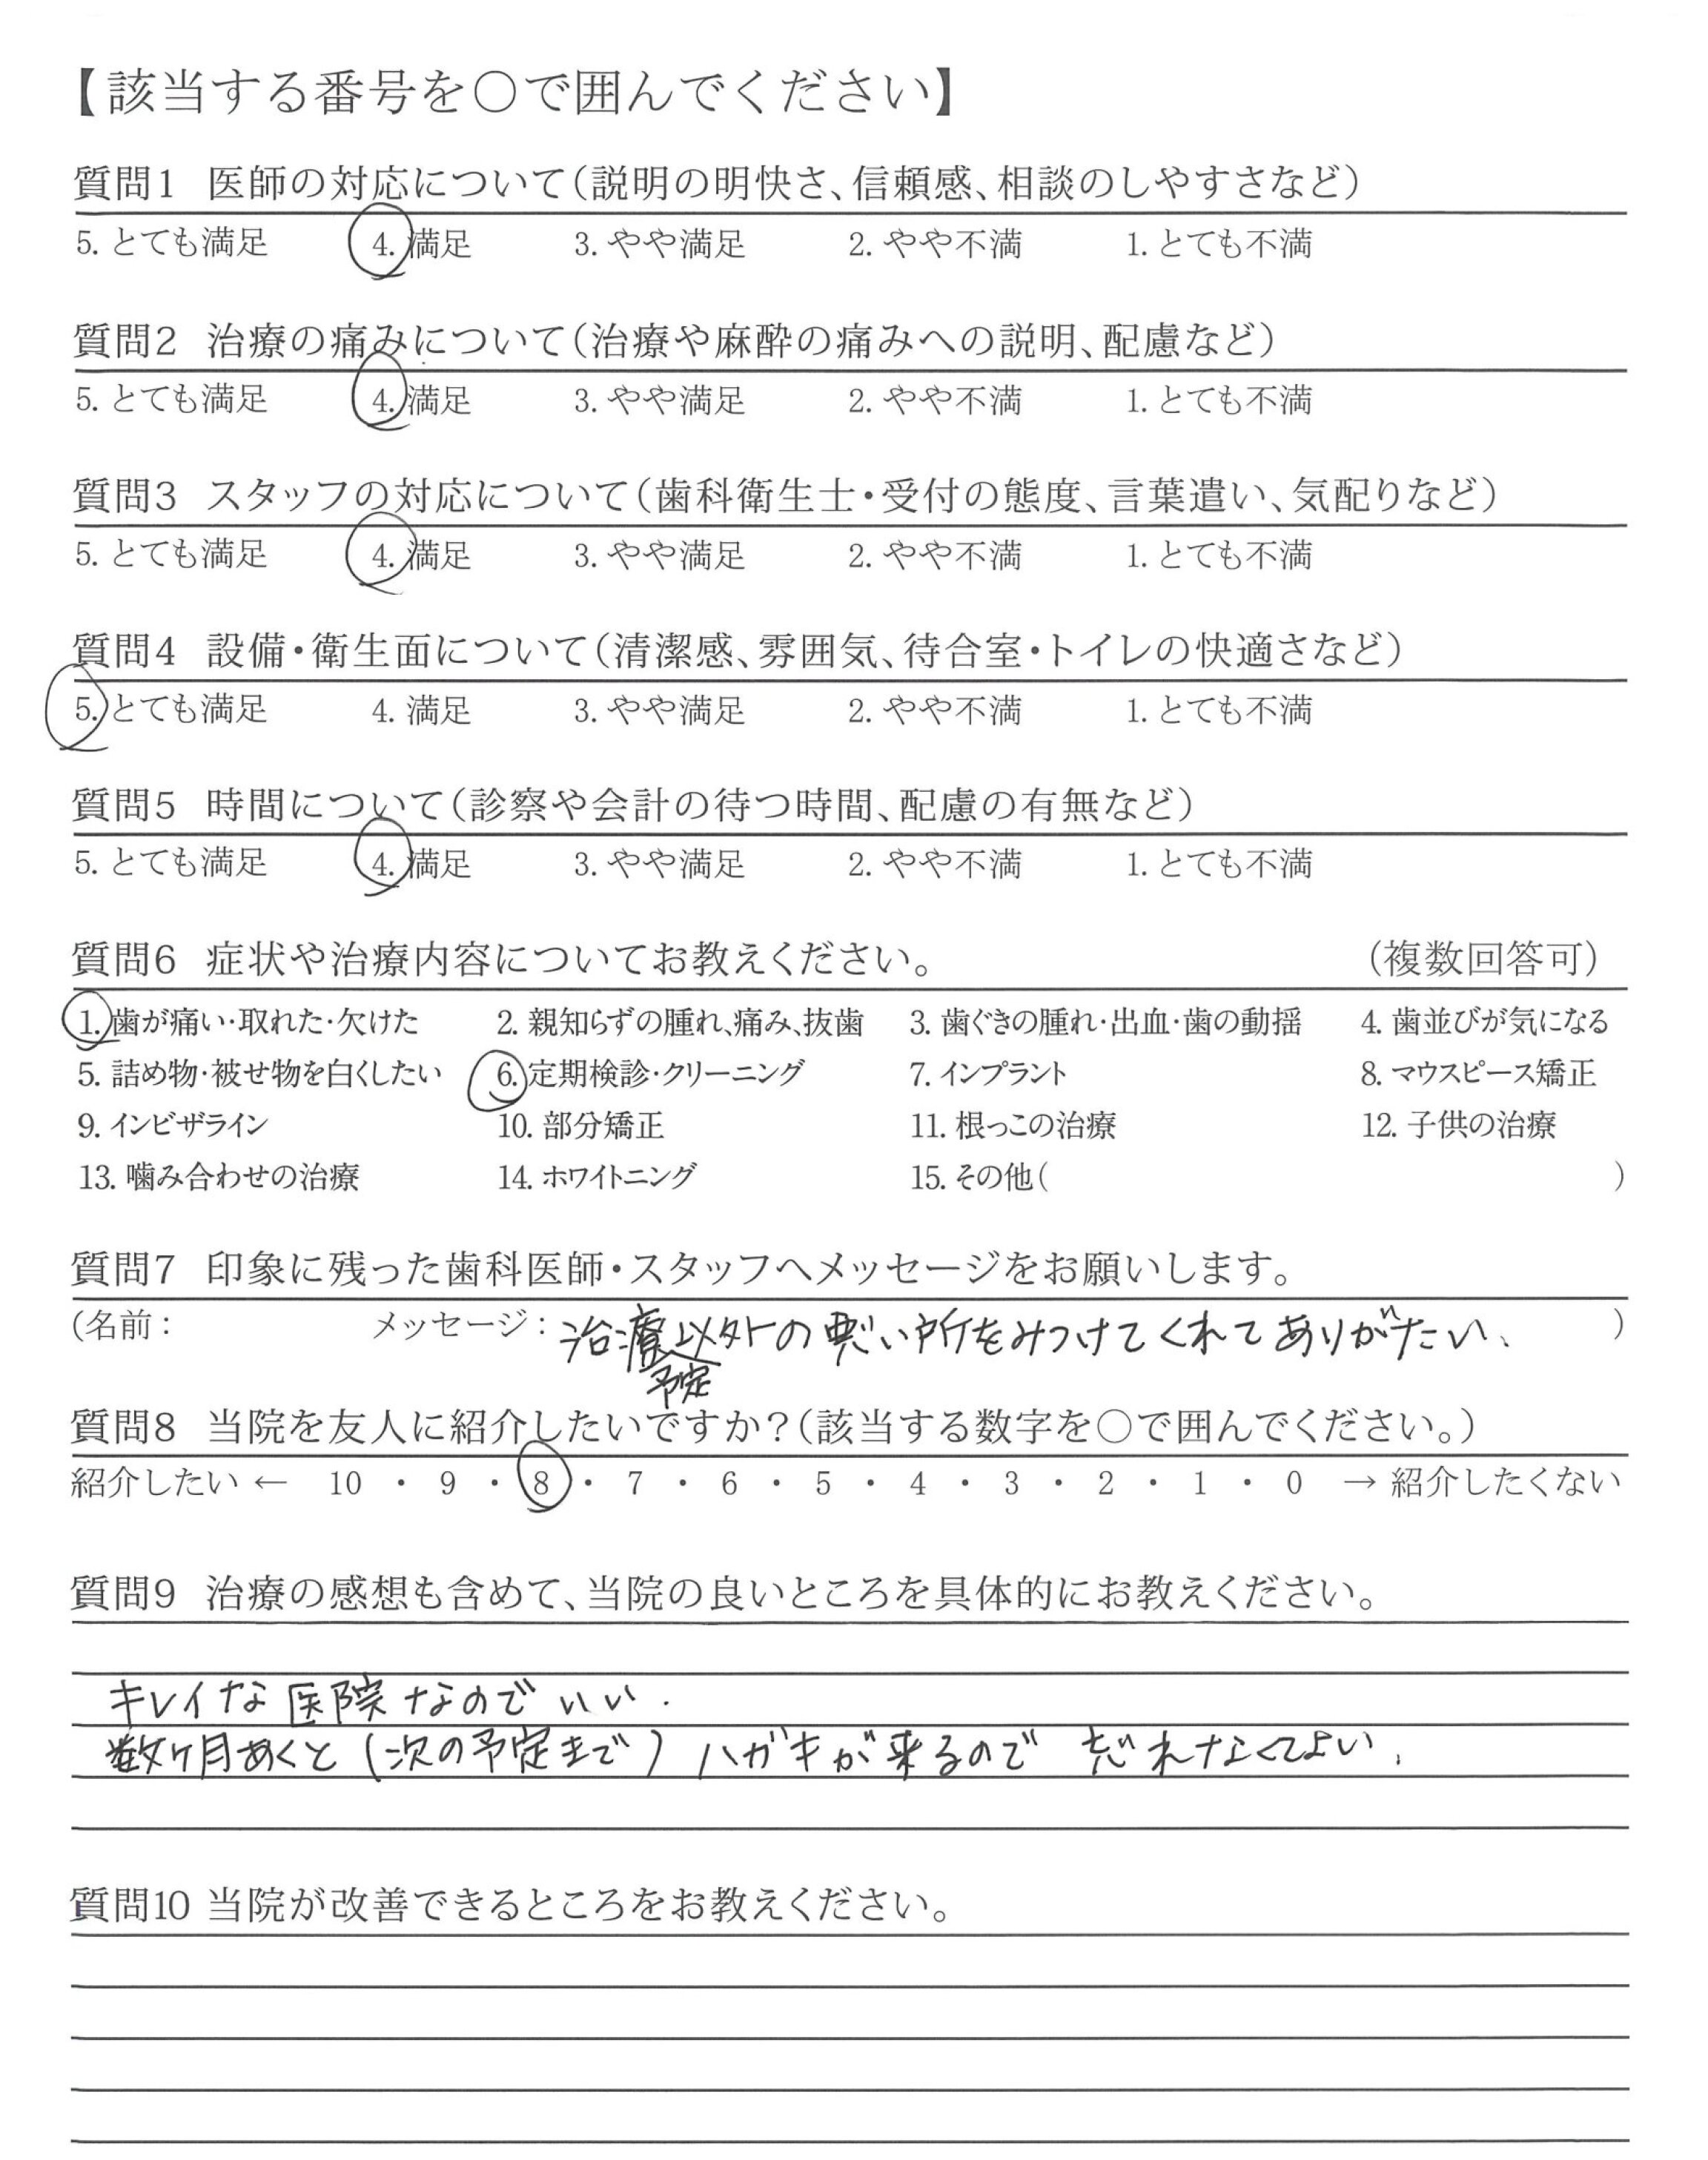 【該当する番号を○で囲んでください】
質問1 医師の対応について(説明の明快さ、信頼感、相談のしやすさなど)
5. とても満足 4. 満足 3. やや満足 2. やや不満 1. とても不満
質問2 治療の痛みについて(治療や麻酔の痛みへの説明、配慮など)
5. とても満足 4. 満足 3. やや満足 2. やや不満 1. とても不満
質問3 スタッフの対応について(歯科衛生士・受付の態度、言葉遣い、気配りなど)
5. とても満足 4. 満足 3. やや満足 2. やや不満 1. とても不満
質問4 設備・衛生面について(清潔感、雰囲気、待合室・トイレの快適さなど)
5. とても満足 4. 満足 3. やや満足 2. やや不満 1. とても不満
質問5 時間について(診察や会計の待つ時間、配慮の有無など)
5. とても満足 4. 満足 3. やや満足 2. やや不満 1. とても不満
質問6 症状や治療内容についてお教えください。 (複数回答可)
1. 歯が痛い・取れた・欠けた 2. 親知らずの腫れ、痛み、抜歯 3. 歯ぐきの腫れ・出血・歯の動揺 4. 歯並びが気になる
5. 詰め物・被せ物を白くしたい 6. 定期検診・クリーニング 7. インプラント 8. マウスピース矯正
9. インビザライン 10. 部分矯正 11. 根っこの治療 12. 子供の治療
13. 噛み合わせの治療 14. ホワイトニング 15. その他( )
質問7 印象に残った歯科医師・スタッフへメッセージをお願いします。
(名前: メッセージ: 治療以外の悪い所をみつけてくれてありがたい、 )
予定
質問8 当院を友人に紹介したいですか?(該当する数字を○で囲んでください。)
紹介したい ← 10 ・ 9 ・ 8 ・ 7 ・ 6 ・ 5 ・ 4 ・ 3 ・ 2 ・ 1 ・ 0 → 紹介したくない
質問9 治療の感想も含めて、当院の良いところを具体的にお教えください。
キレイな医院なのでいい.
数ヶ月あくと(次の予定まで)ハガキが来るので 忘れなくてよい、
質問10 当院が改善できるところをお教えください。